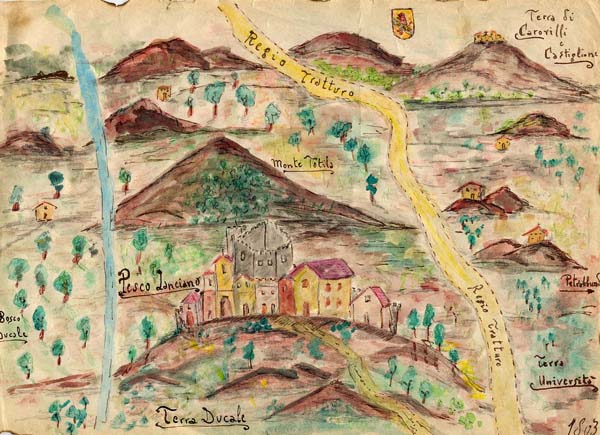 Terra di
Carovilli
e
Castiglione
Regio Tratturo
Monte Totila
Pesco Lanciano
Bosco
Ducale
Regio Tratturo
Terra
Università
Terra Ducale
1803